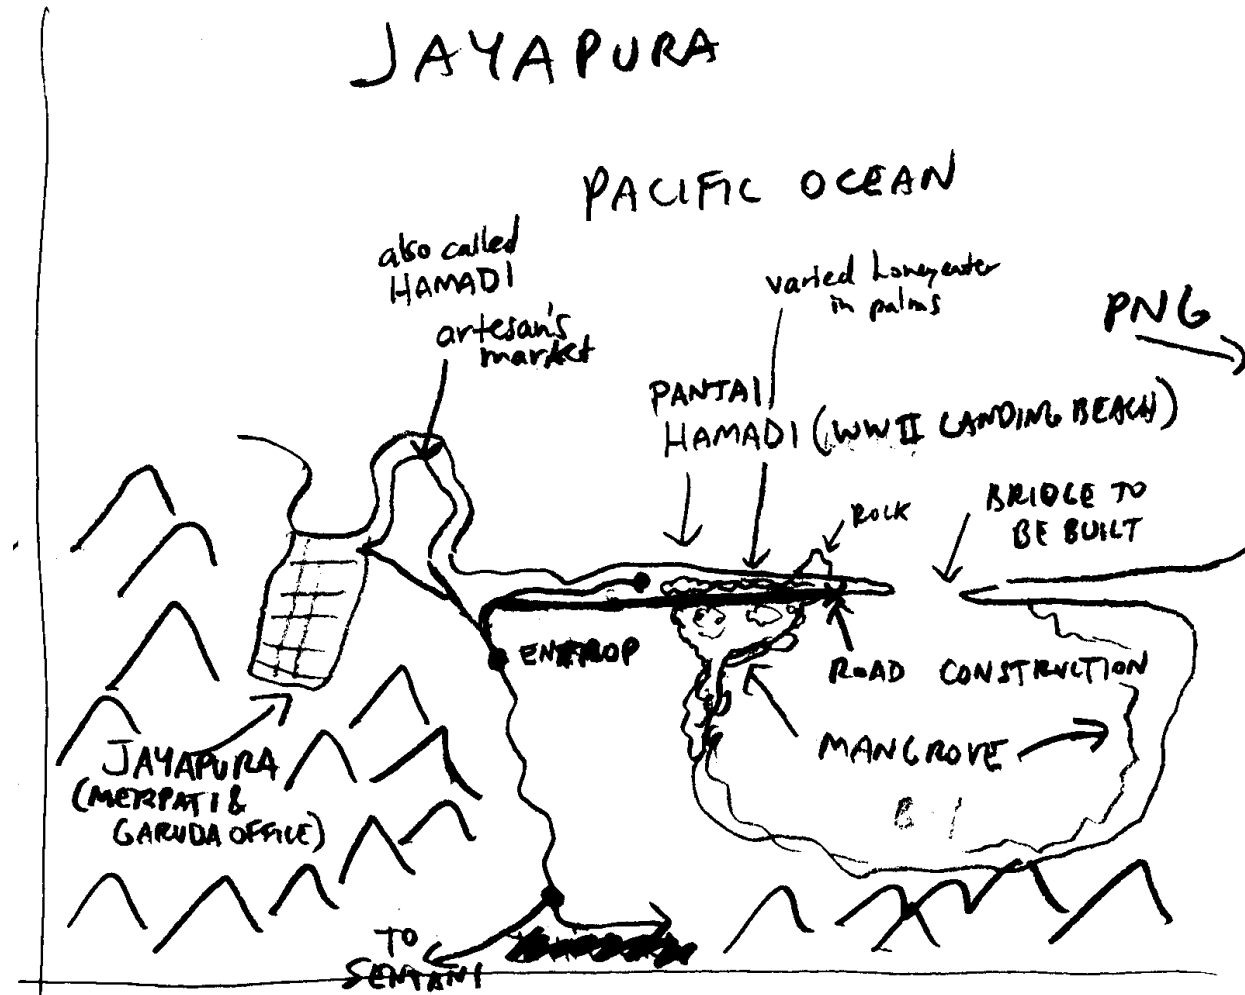 JAYAPURA
PACIFIC OCEAN
also called
HAMADI
artesan's
market
varied Honeyeater
in palms
PNG
PANTAI
HAMADI (WWII LANDING BEACH)
ROCK
BRIDGE TO
BE BUILT
ENTROP
ROAD CONSTRUCTION
MANGROVE
JAYAPURA
(MERPATI &
GARUDA OFFICE)
TO
SENTANI